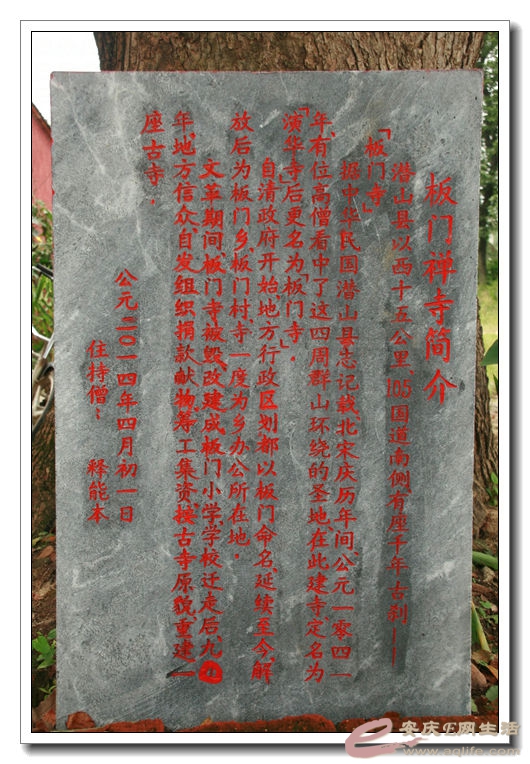 板门禅寺简介
潜山县以西十五公里、105国道南侧,有座千年古刹——
「板门寺」
据中华民国潜山县志记载,北宋庆历年间,公元一零四一
年,有位高僧看中了这四周群山环绕的圣地,在此建寺,定名为
「演华寺」后更名为板门寺」。
自清政府开始,地方行政区划都以板门命名,延续至今,解
放后为板门乡板门村,寺一度为乡办公所在地。
文革期间,板门寺被毁,改建成板门小学,学校迁走后,九
年,地方信众,自发组织捐款献物,筹工集资,按古寺原貌重建一
座古寺。
公元二〇一四年四月初一日
住持僧: 释能本
安庆E网生活
www.aqlife.com